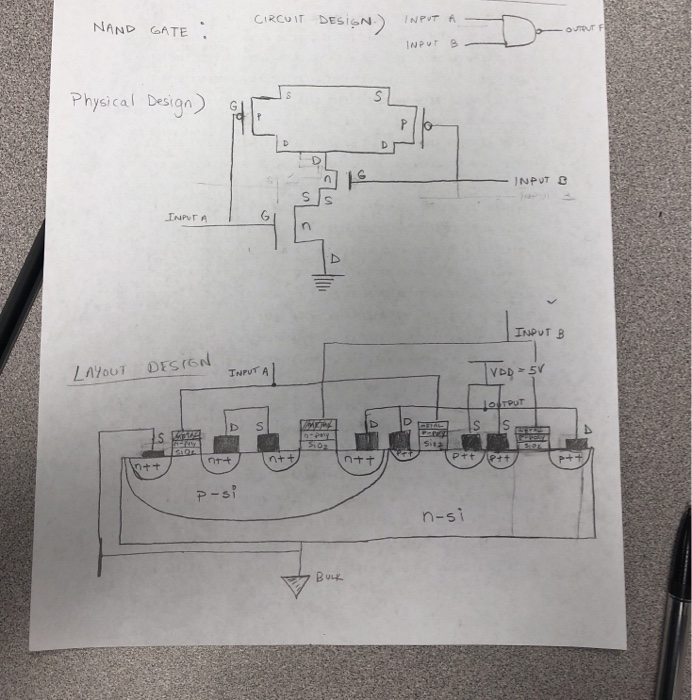 NAND GATE :
CIRCUIT DESIGN)
INPUT A
INPUT B
OUTPUT F
Physical Design)
S S
G P P
D D
D
n G
INPUT B
S S
INPUT A G n
D
INPUT B
LAYOUT DESIGN
INPUT A
VDD = 5V
OUTPUT
S METAL D S METAL D D METAL S S METAL D
n-poly n-poly P-poly P-poly
SiO2 SiO2 SiO2 SiO2
n++ n++ n++ n++ P++ P++ P++ P++
p-si
n-si
BULK